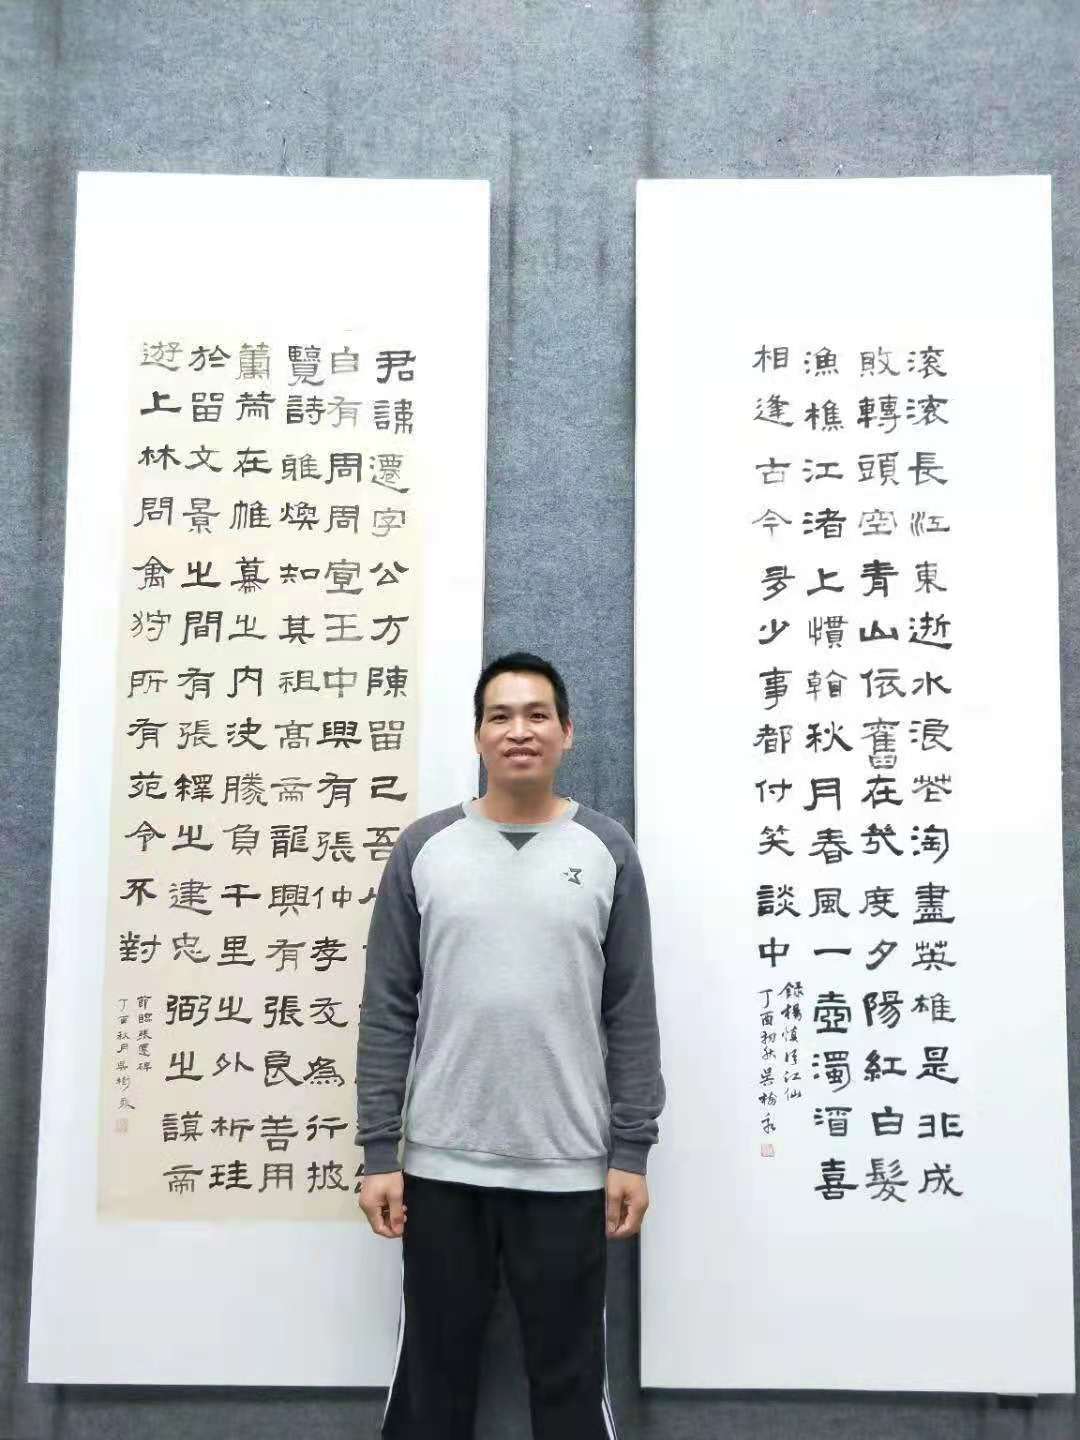 滚滚長江東逝水浪花淘盡英雄是非成
敗轉頭空青山依舊在幾度夕陽紅白髮
漁樵江渚上慣看秋月春風一壺濁酒喜
相逢古今多少事都付笑談中
錄楊慎臨江仙
丁酉初秋吳樹
君諱遷字公方陳留己吾
自有周周宣王中興有張仲孝友為行披
覽詩雅煥知其祖高帝龍興有張良善用
籌策在帷幕之內決勝負千里之外析珪
於留文景之間有張釋之建忠弼之謨帝
遊上林問禽狩所有苑令不對
節臨張遷碑
丁酉秋月吳樹